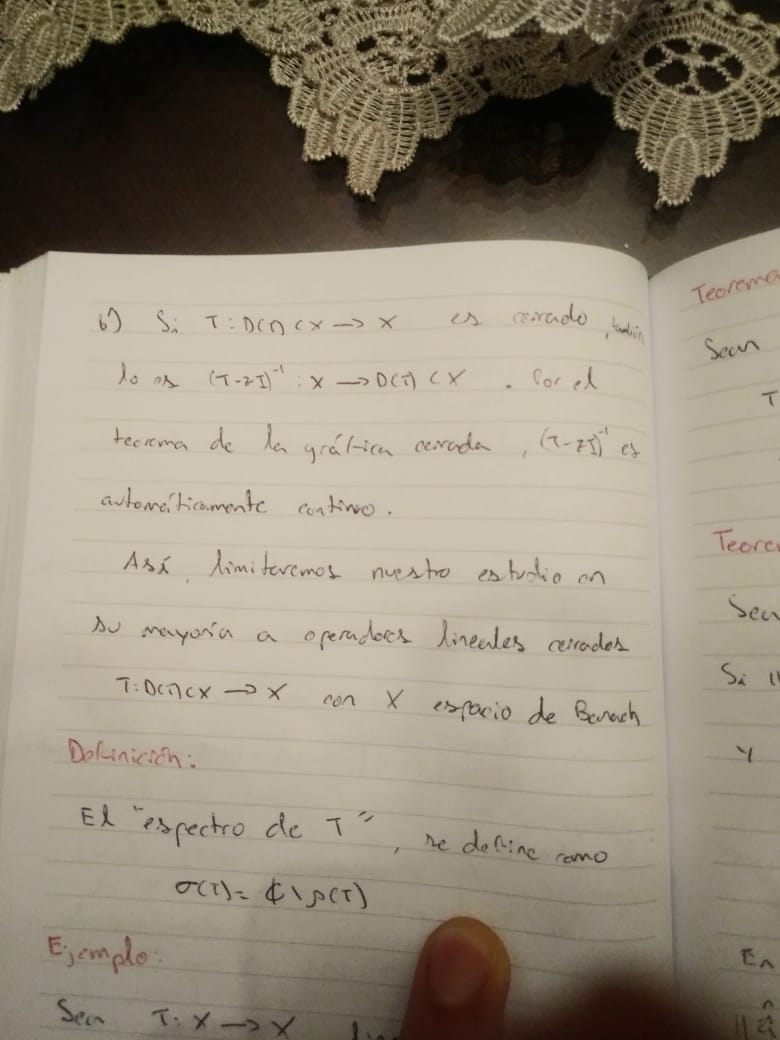 b) Si T:D(T)⊂X → X es cerrado, también
lo es (T-zI)⁻¹ : X → D(T) ⊂ X . Por el
teorema de la gráfica cerrada, (T-zI)⁻¹ es
automáticamente continuo.
Así, limitaremos nuestro estudio en
su mayoría a operadores lineales cerrados
T:D(T)⊂X → X con X espacio de Banach
Definición:
El "espectro de T", se define como
σ(T)= ℂ\ρ(T)
Ejemplo:
Sea T: X → X
Teorema
Sean
T
Teore
Sea
Si
Y
En